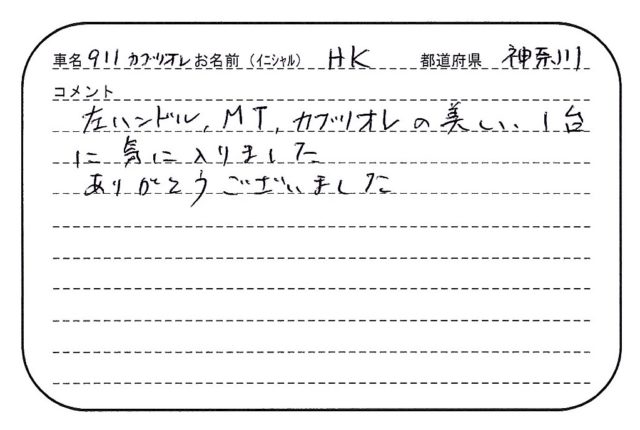 車名 911 カブリオレ お名前（イニシャル） HK 都道府県 神奈川
コメント
左ハンドル, MT, カブリオレの美しい、1台
に気に入りました
ありがとうございました